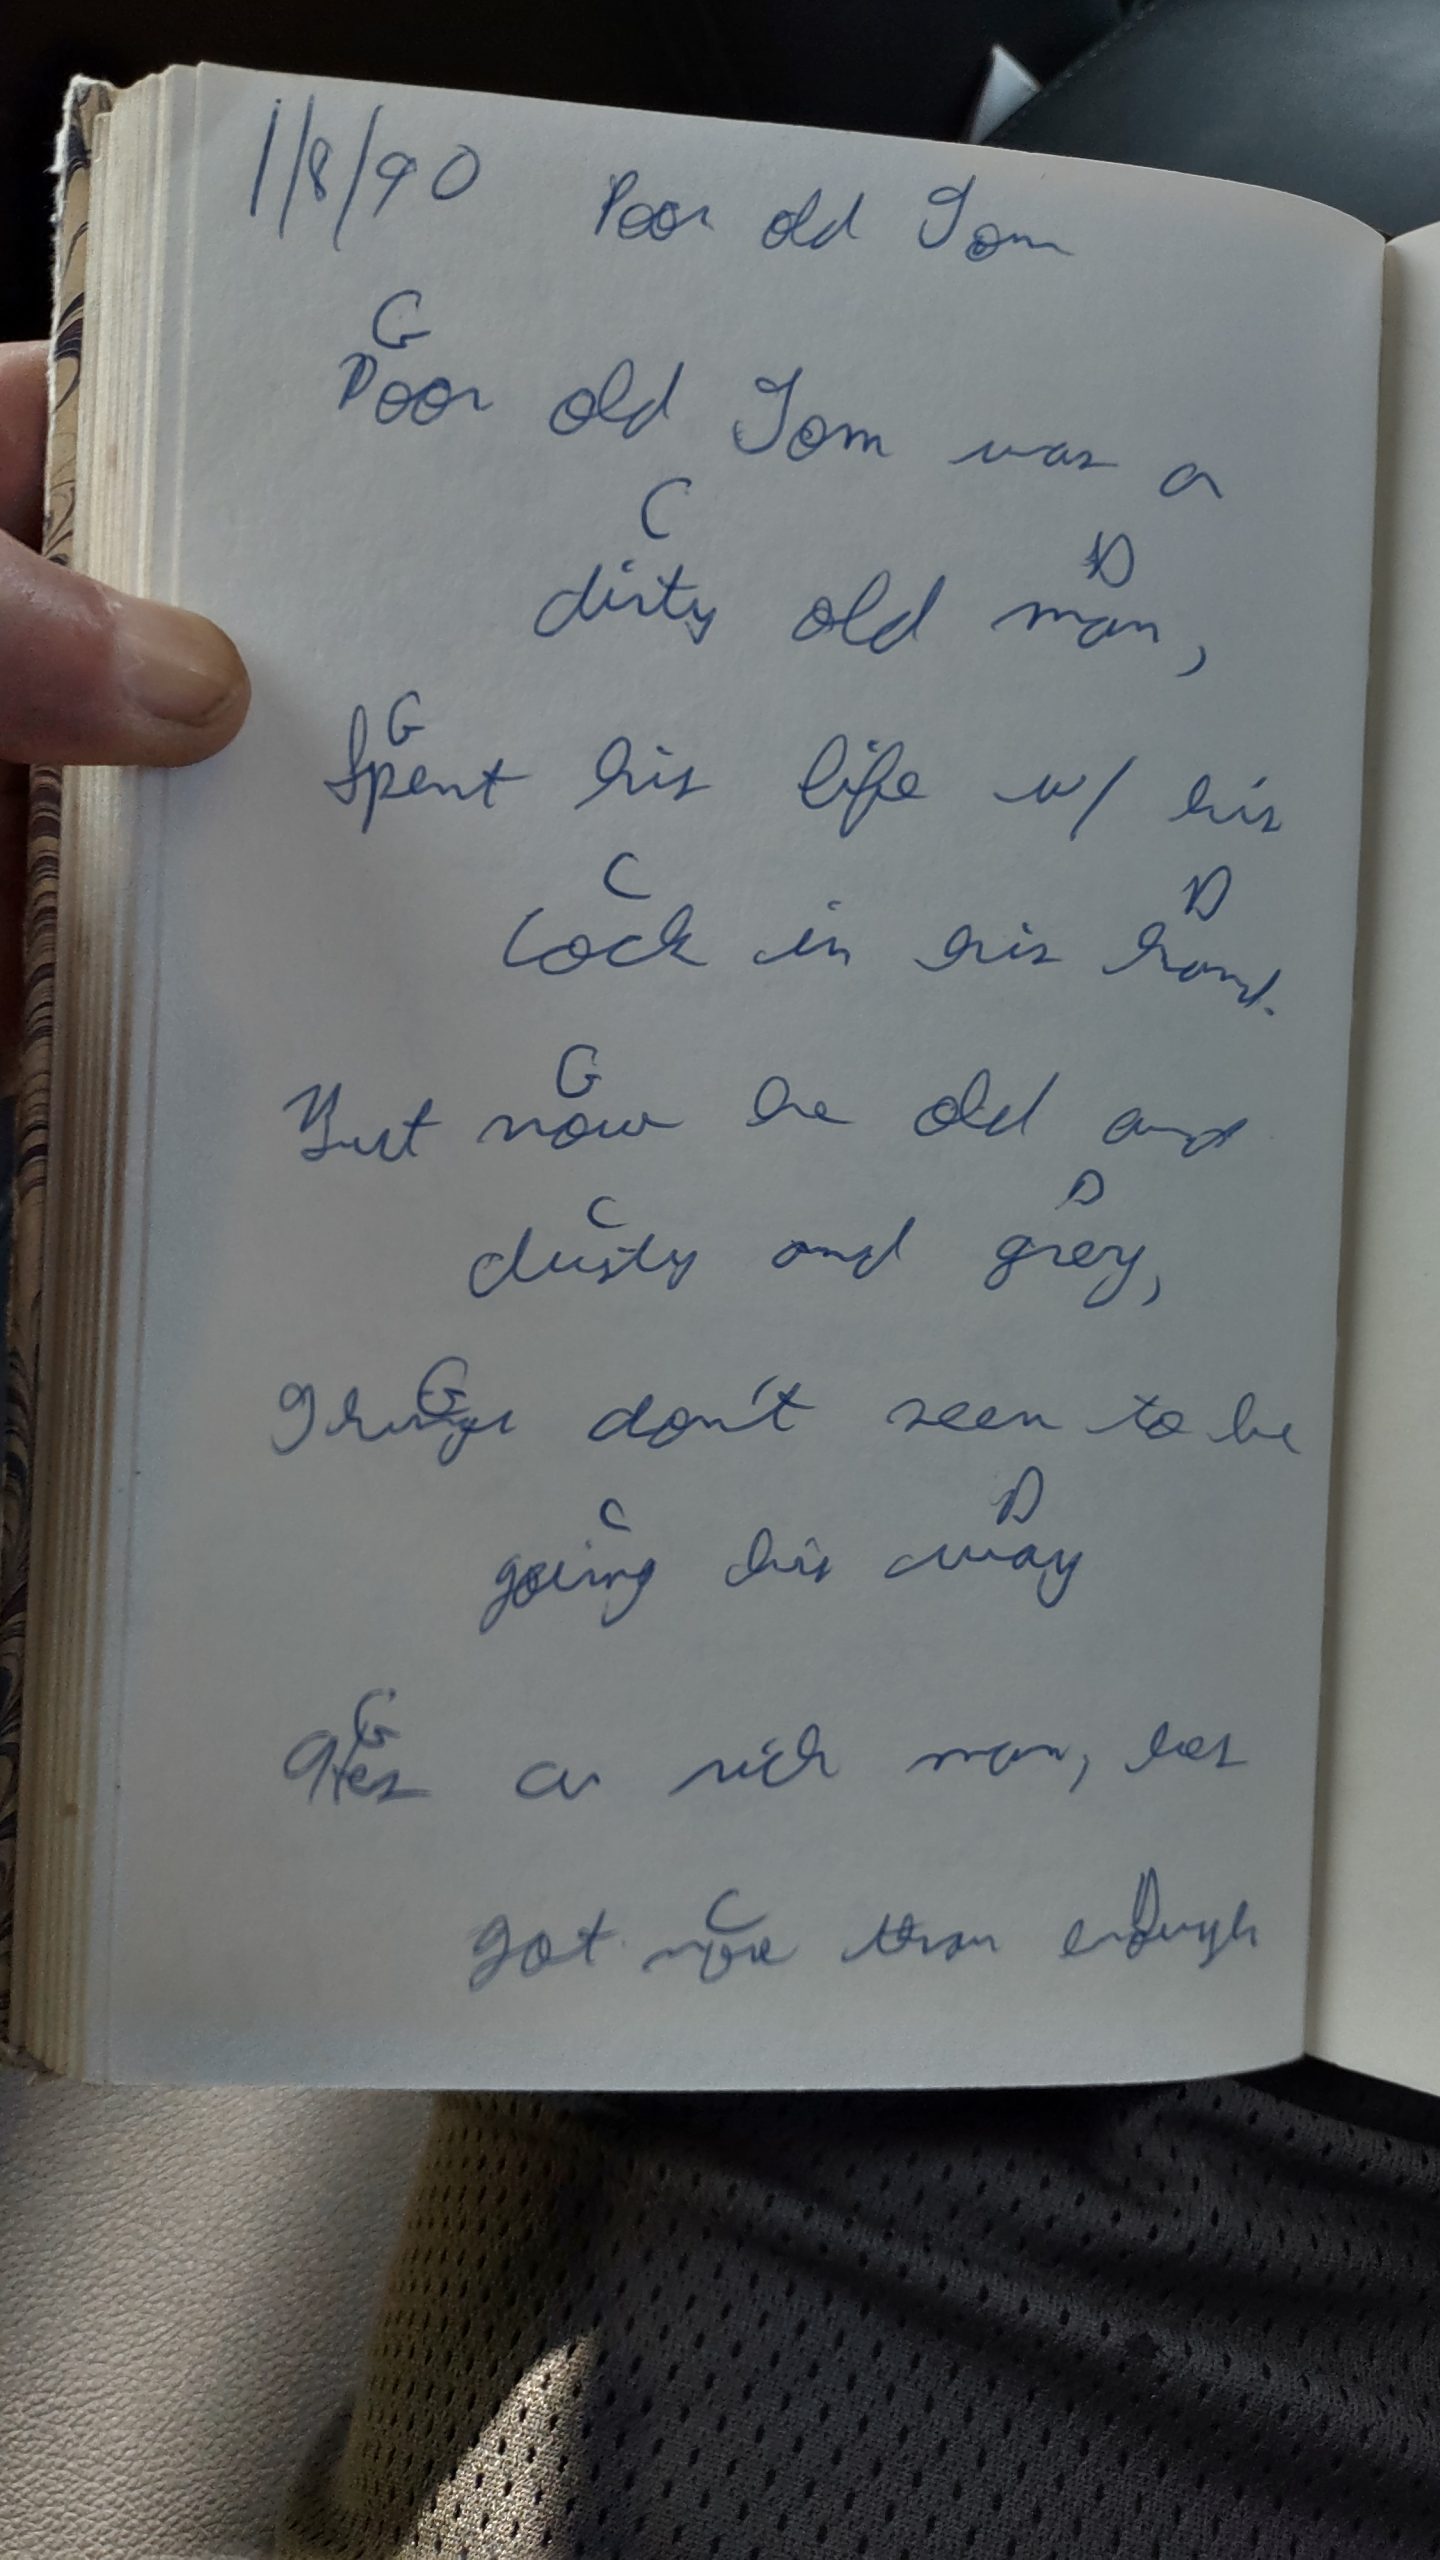 1/8/90 Poor old Tom
G
Poor old Tom was a
C D
dirty old man,
G
Spent his life w/ his
C D
Cock in his hand.
G
But now he old and
C D
dusty and grey,
G
Things don't seem to be
C D
going his way
G
Hes a rich man, hes
C D
got more than enough